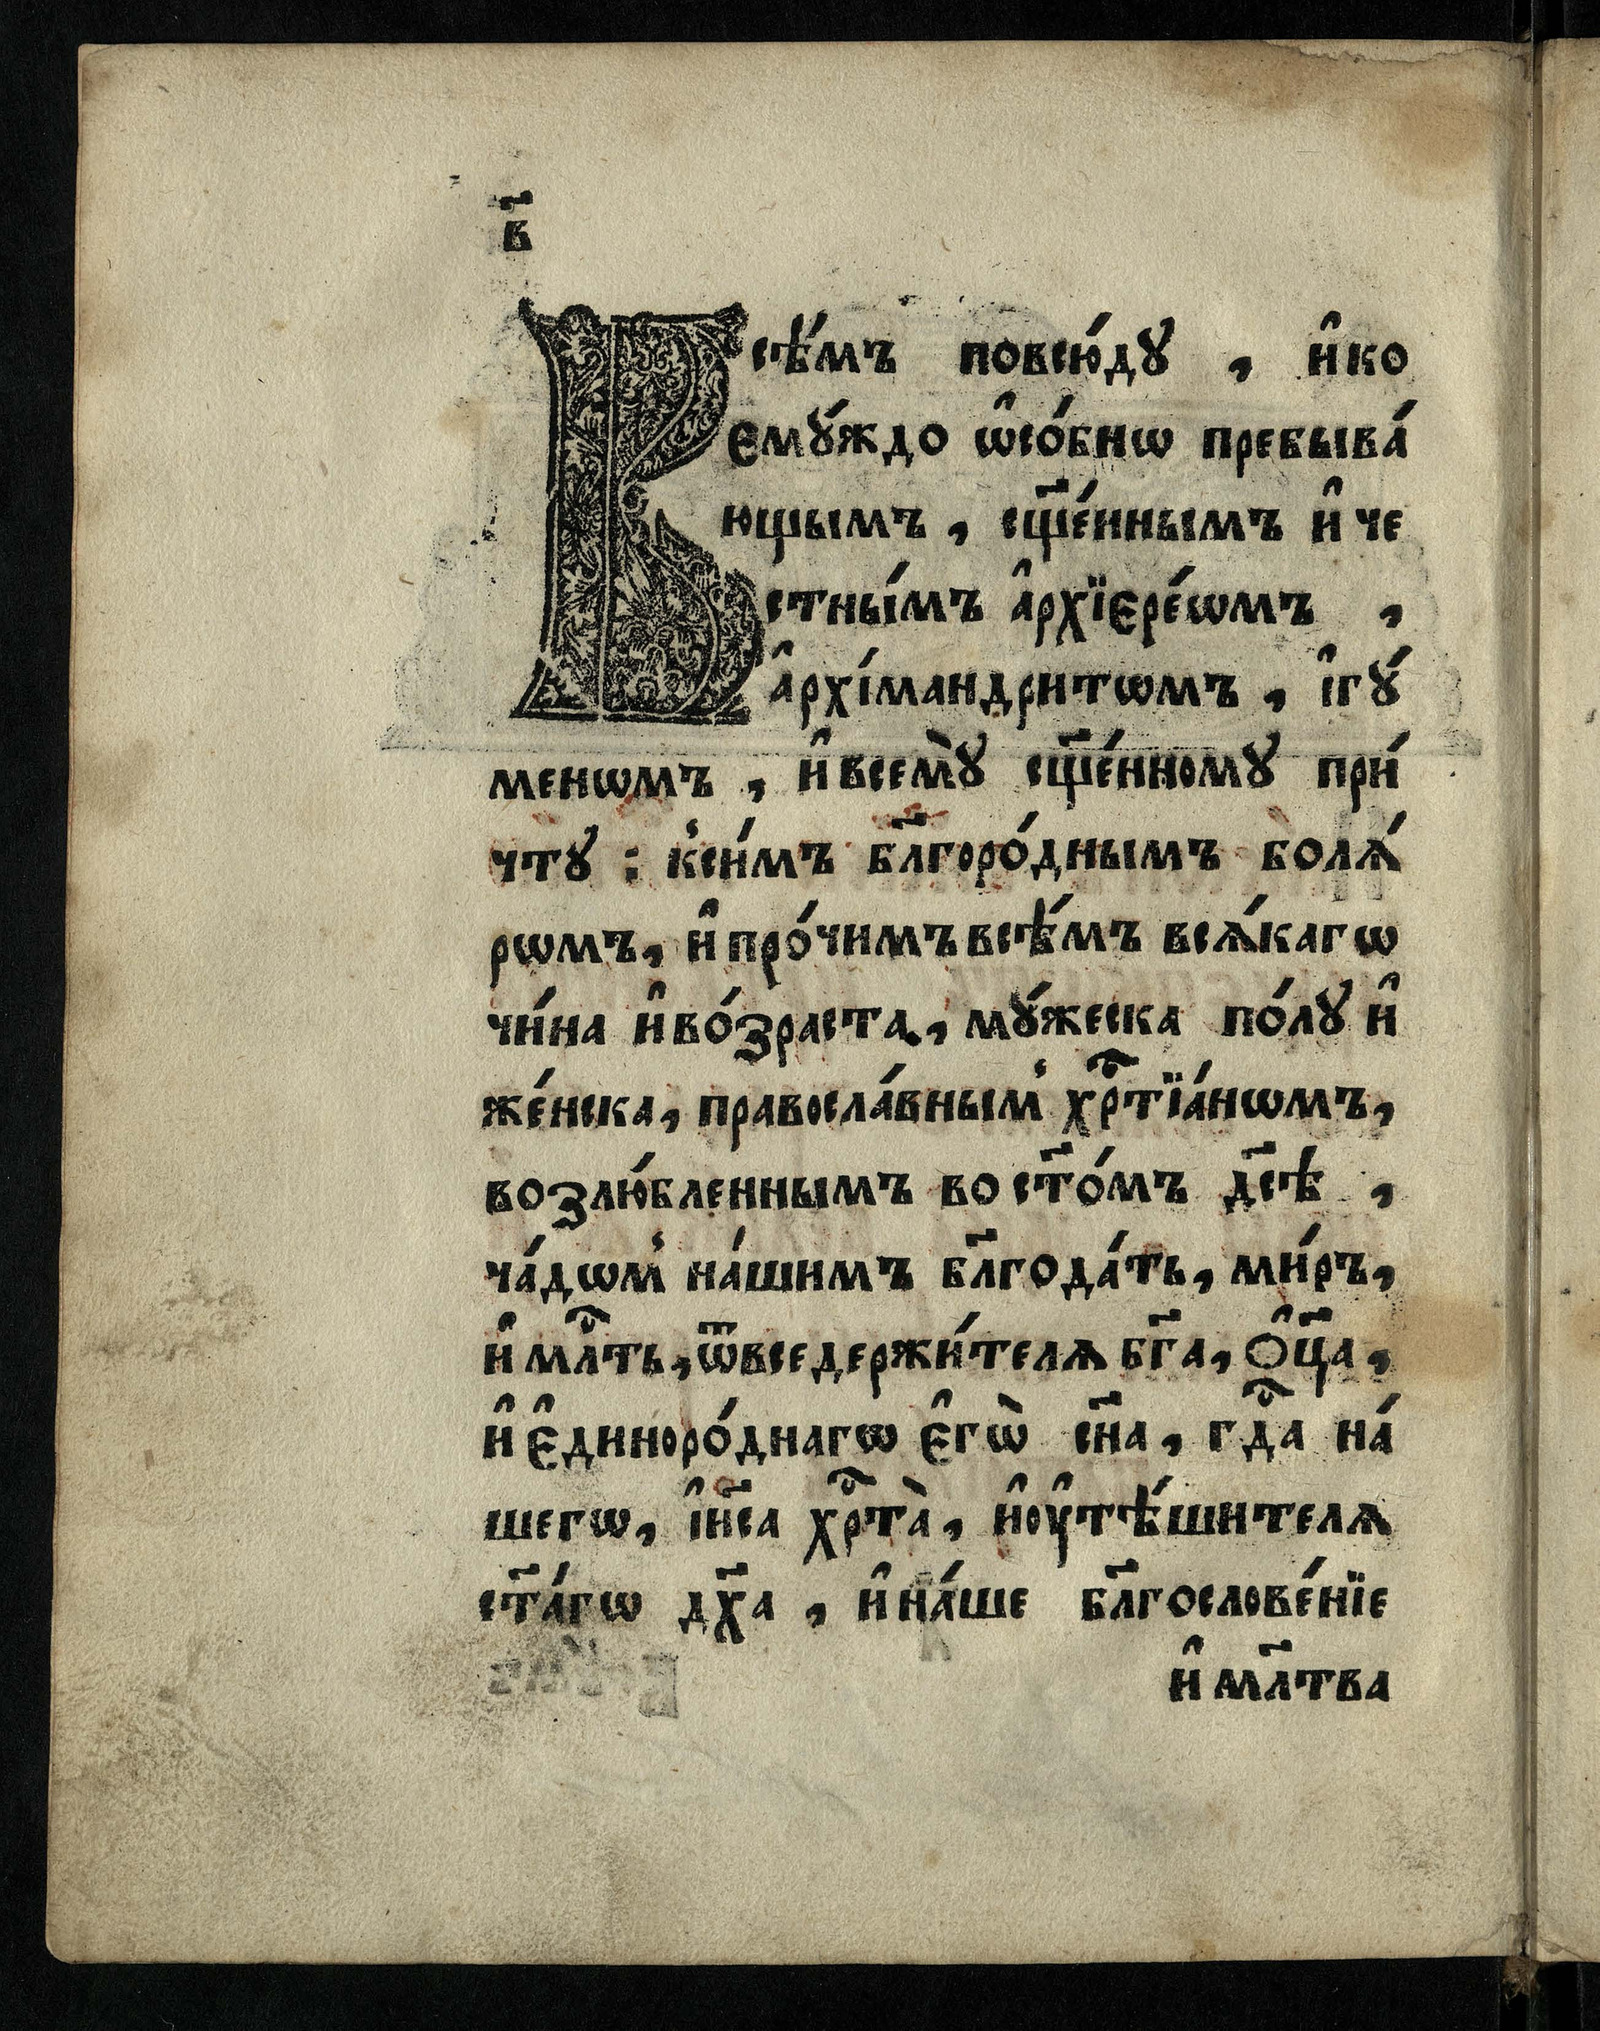 в҃
Всѣ́мъ повсю́дꙋ , и҆ ко
емꙋ́ждо ѡ҆со́бнѡ пребыва́
ющымъ , сщ҃е́ннымъ и҆ че
стны́мъ а҆рхїере́ѡмъ ,
а҆рхі́мандритѡмъ , і҆гꙋ́
менѡмъ , и҆ всемꙋ̀ сщ҃е́нномꙋ при́
чтꙋ : к̾си́мъ бл҃горо́днымъ болѧ́
рѡмъ, и҆ про́чимъ всѣ́мъ всѧ́кагѡ
чи́на и҆ во́зраста, мꙋ́жеска по́лꙋ и҆
же́нска, правосла́вным̾ хрⷭ҇тїа́нѡмъ,
возлю́бленнымъ во ст҃о́мъ дс҃ѣ ,
ча́дѡм̾ на́шимъ бл҃года́ть, ми́ръ,
и҆ млⷭ҇ть, ѿ вседержи́телѧ бг҃а, ѻ҆ц҃а,
и҆ є҆диноро́днагѡ є҆гѡ̀ сн҃а, гдⷭ҇а на́
шегѡ, і҆и҃са хрⷭ҇та̀, и҆ оу҆тѣ́шителѧ
ст҃а́гѡ дх҃а , и҆ на́ше бл҃гослове́нїе
и҆ мл҃тва